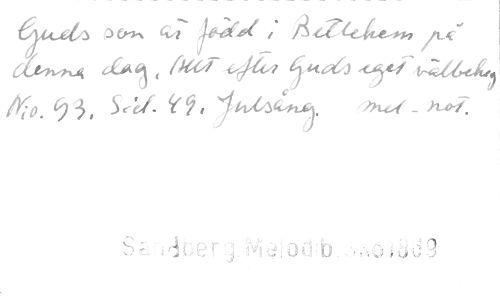 Guds son är född i Betlehem på
denna dag. Allt efter Guds eget välbehag
No. 93. Sid. 49. Julsång. mel-not.
Sandberg Melodib.